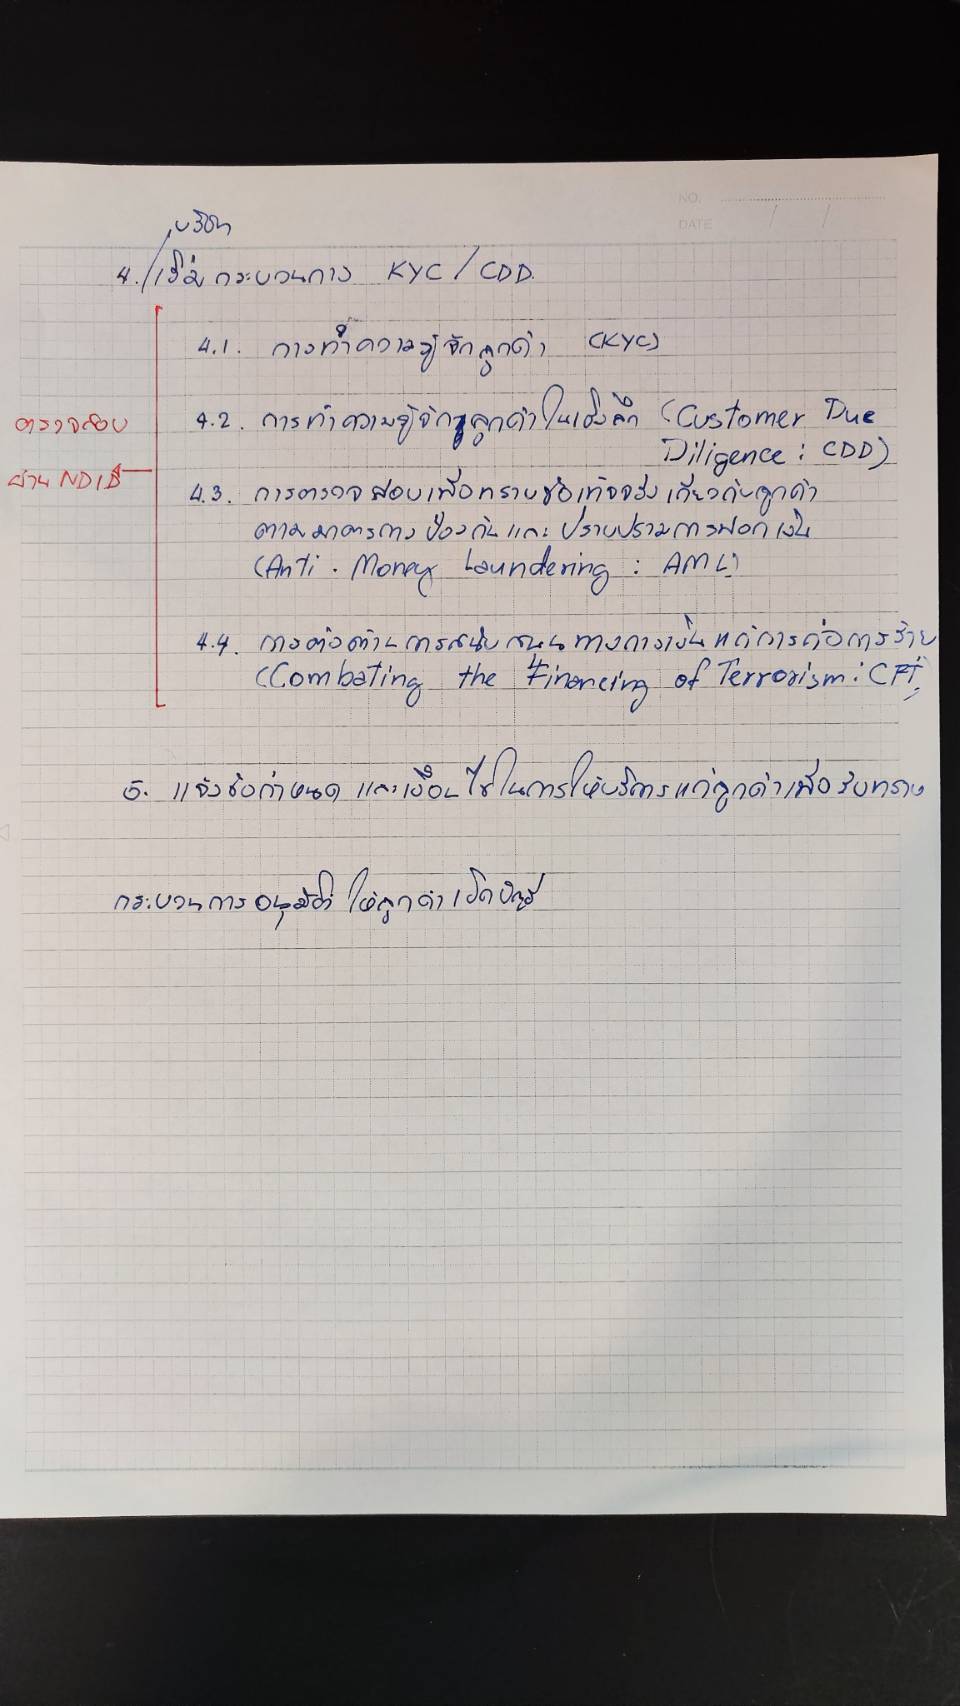 NO.
DATE / /
บริษัท
4. เริ่มกระบวนการ KYC / CDD.
4.1. การทำความรู้จักลูกค้า (KYC)
4.2. การทำความรู้จักลูกค้าในเชิงลึก (Customer Due
Diligence : CDD)
ตรวจสอบ
ผ่าน NDID
4.3. การตรวจสอบเพื่อทราบข้อเท็จจริงเกี่ยวกับลูกค้า
ตามมาตรการป้องกันและปราบปรามการฟอกเงิน
(Anti - Money Laundering : AML)
4.4. การต่อต้านการสนับสนุนทางการเงินแก่การก่อการร้าย
(Combating the Financing of Terrorism : CFT)
5. แจ้งข้อกำหนด และเงื่อนไขในการให้บริการแก่ลูกค้าเพื่อรับทราบ
กระบวนการอนุมัติ ให้ลูกค้าเปิดบัญชี